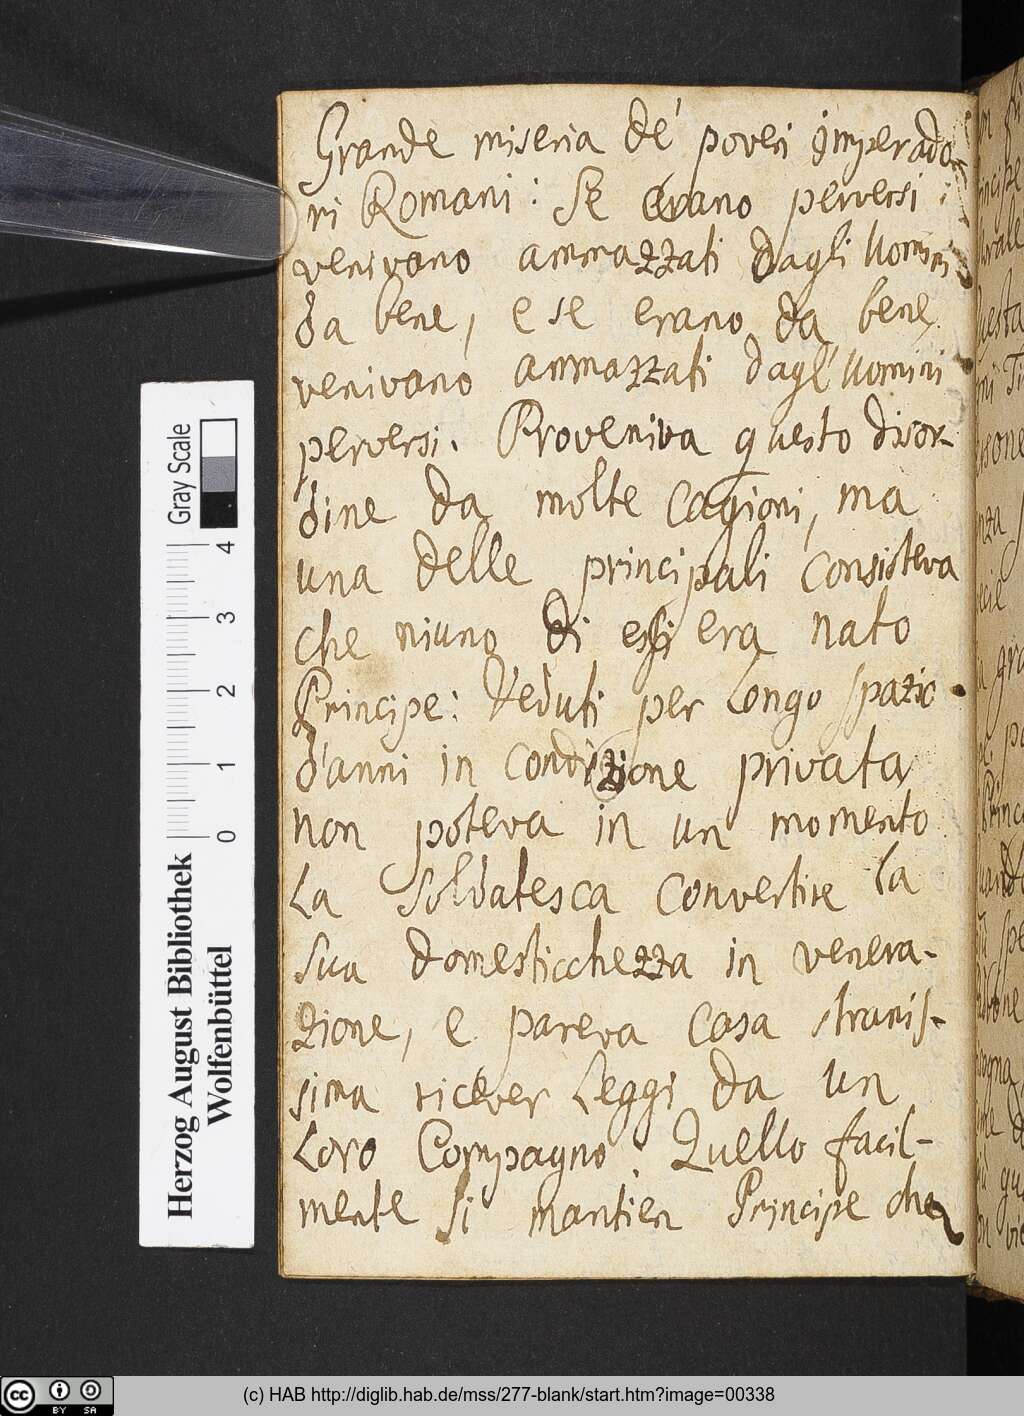 Grande miseria de' poveri Imperado-
ri Romani: Se erano perversi
venivano ammazzati dagli Uomini
da bene, e se erano da bene
venivano ammazzati dagl' Uomini
perversi. Proveniva questo disor-
dine da molte cagioni, ma
una delle principali consisteva
che niuno di essi era nato
Principe: Veduti per longo spazio
d'anni in condizione privata
non poteva in un momento
la soldatesca convertire la
sua domesticchezza in venera-
zione, e pareva cosa stranis-
sima ricever leggi da un
loro Compagno. Quello facil-
mente si mantien Principe che
Gray Scale
0 1 2 3 4
Herzog August Bibliothek
Wolfenbüttel
cc BY SA
(c) HAB http://diglib.hab.de/mss/277-blank/start.htm?image=00338